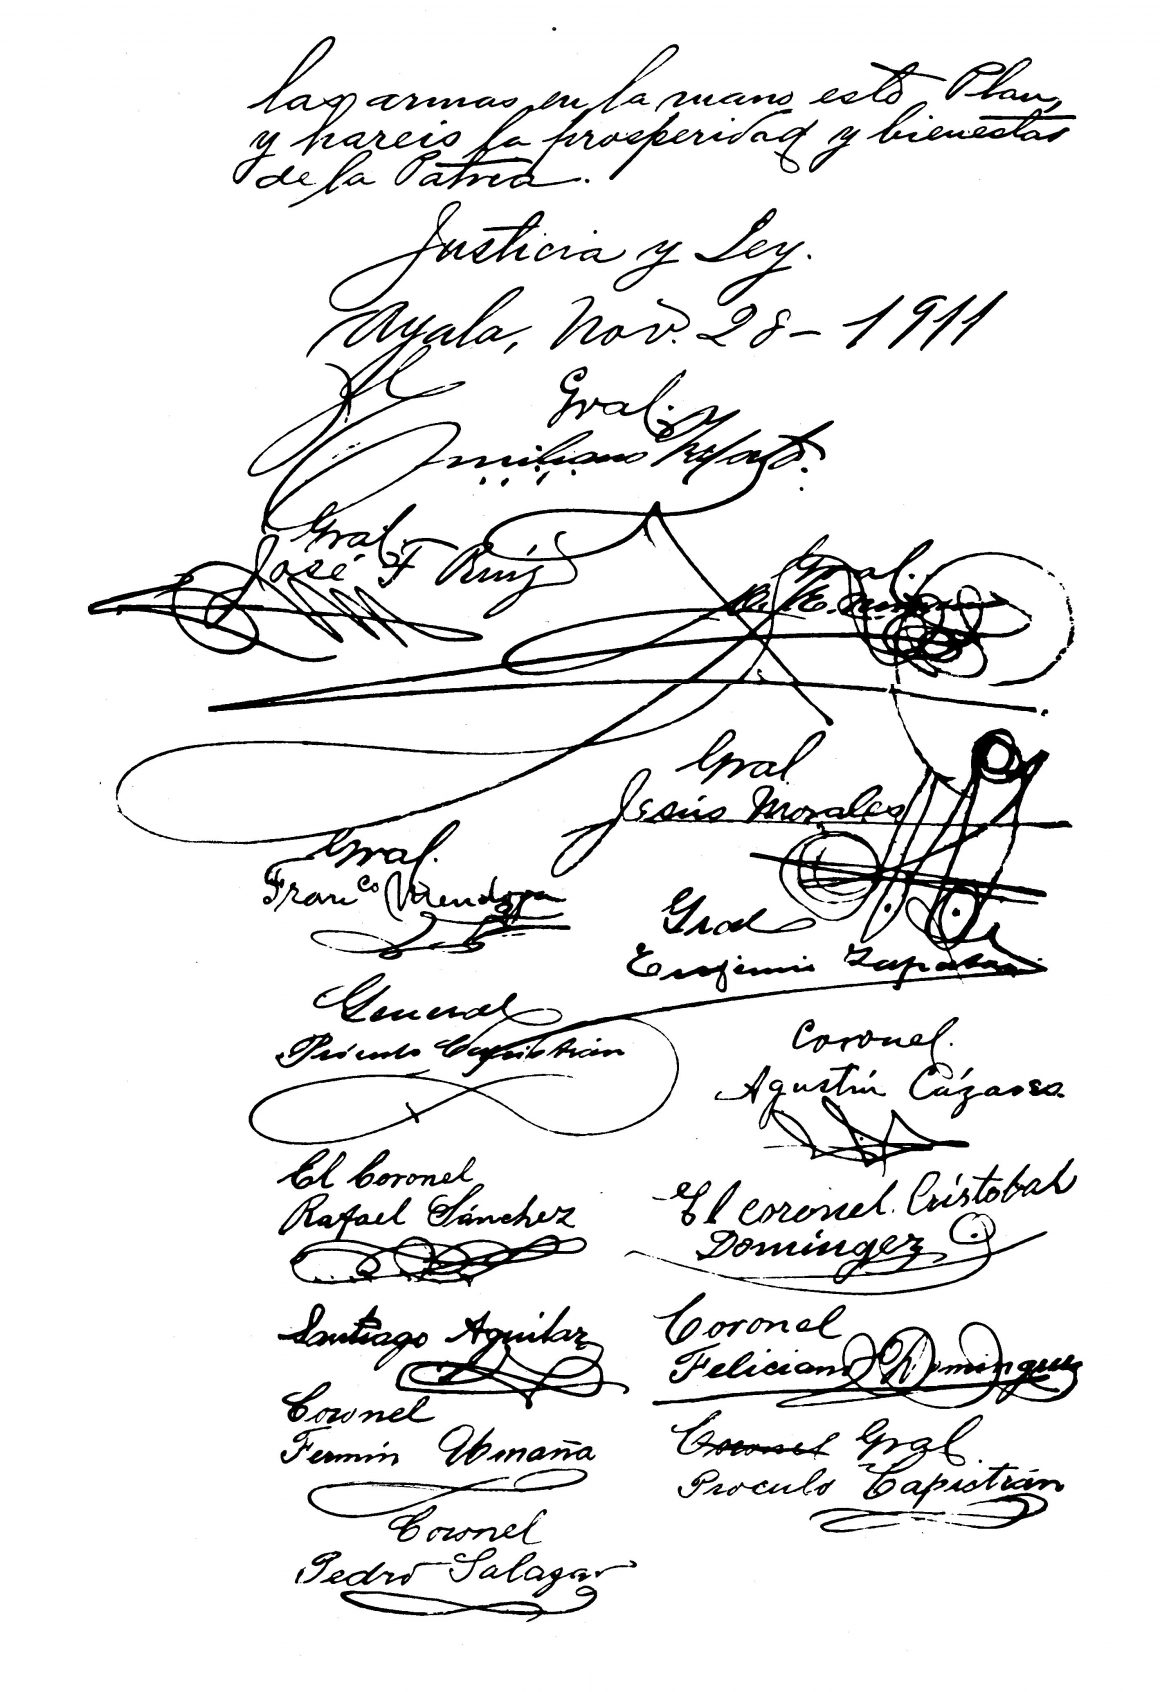 las armas en la mano este Plan,
y hareis la prosperidad y bienestar
de la Patria.
Justicia y Ley.
Ayala, Nov. 28-1911
Gral.
Emiliano Zapata.
Gral.
José F Ruiz
Gral.
O. E.
Gral
Jesús Morales
Gral.
Franco Mendoza
Gral
Eugenio Zapata
General
Próculo Capistrán
Coronel.
Agustín Cázares.
El Coronel
Rafael Sánchez
El coronel. Cristobal
Domíngez
Santiago Aguilar
Coronel
Feliciano Dominguez
Coronel
Fermín Omaña
Coronel Gral
Proculo Capistrán
Coronel
Pedro Salazar